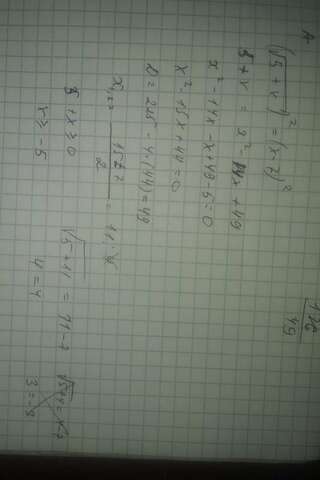 (√5 + x)² = (x-7)²
5 + x = x² - 14x + 49
x² - 14x - x + 49 - 5 = 0
x² - 15x + 44 = 0
D = 225 - 4·(44) = 49
x₁,₂ = 15±7 / 2 = 11; 4
5 + x ≥ 0
x ≥ -5
√5+11 = 11-7
4 = 4
√5+4 = 4-7
3 = -3